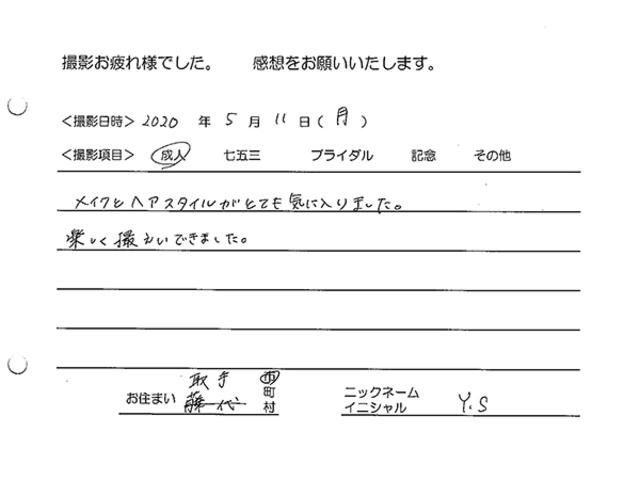 撮影お疲れ様でした。 感想をお願いいたします。
<撮影日時> 2020 年 5 月 11 日 ( 月 )
<撮影項目> 成人 七五三 ブライダル 記念 その他
メイクとヘアスタイルがとても気に入りました。
楽しく撮えいできました。
お住まい 取手 藤代 市 町 村
ニックネーム イニシャル Y.S